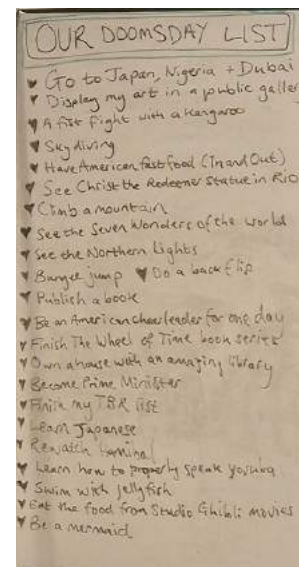 OUR DOOMSDAY LIST
♥ Go to Japan, Nigeria + Dubai
♥ Display my art in a public galler
♥ A fist fight with a kangaroo
♥ Sky diving
♥ Have American fast food (In and Out)
♥ See Christ the Redeemer Statue in Rio
♥ Climb a mountain
♥ See the Seven Wonders of the world
♥ See the Northern Lights
♥ Bungee jump ♥ Do a back flip
♥ Publish a book
♥ Be an American cheerleader for one day
♥ Finish The Wheel of Time book series
♥ Own a house with an amazing library
♥ Become Prime Minister
♥ Finish my TBR list
♥ Learn Japanese
♥ Rewatch
♥ Learn how to properly speak Yoruba
♥ Swim with jellyfish
♥ Eat the food from Studio Ghibli movies
♥ Be a mermaid